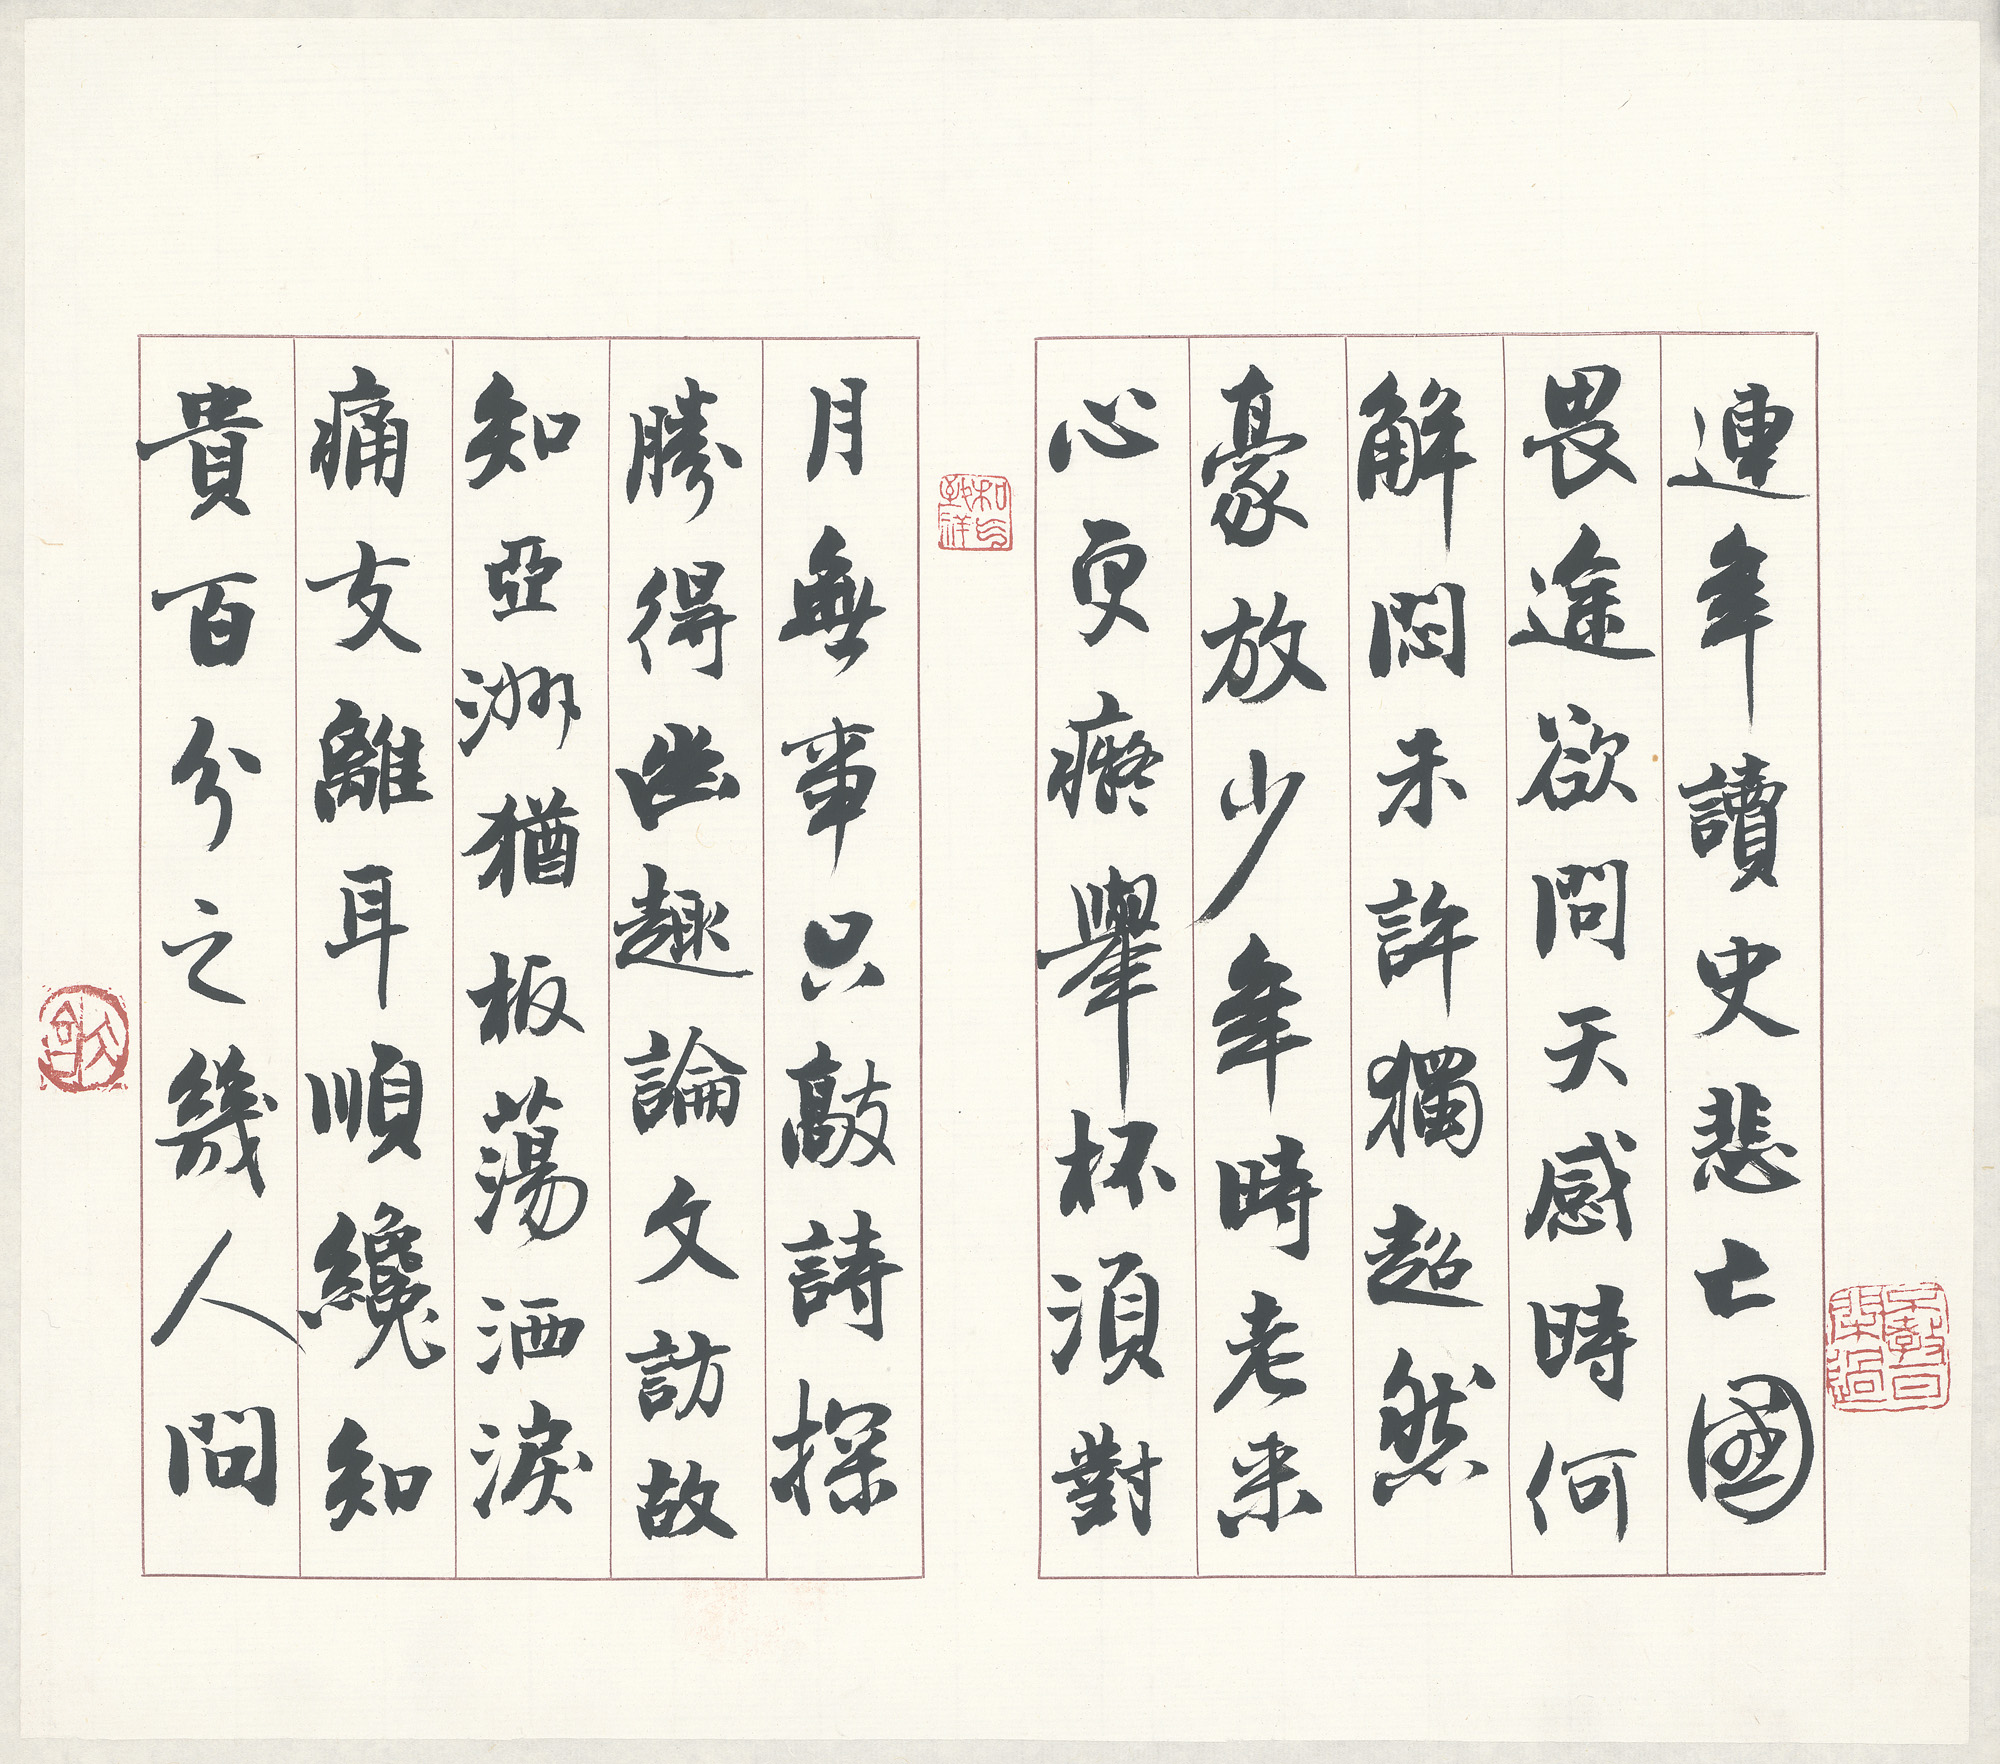 連年讀史悲亡國
畏途欲問天感時何
解悶未許獨超然
豪放少年時老来
心更癡舉杯須對
月無事只敲詩探
勝得幽趣論文訪故
知亞洲猶板蕩洒淚
痛支離耳順纔知
貴百分之幾人問